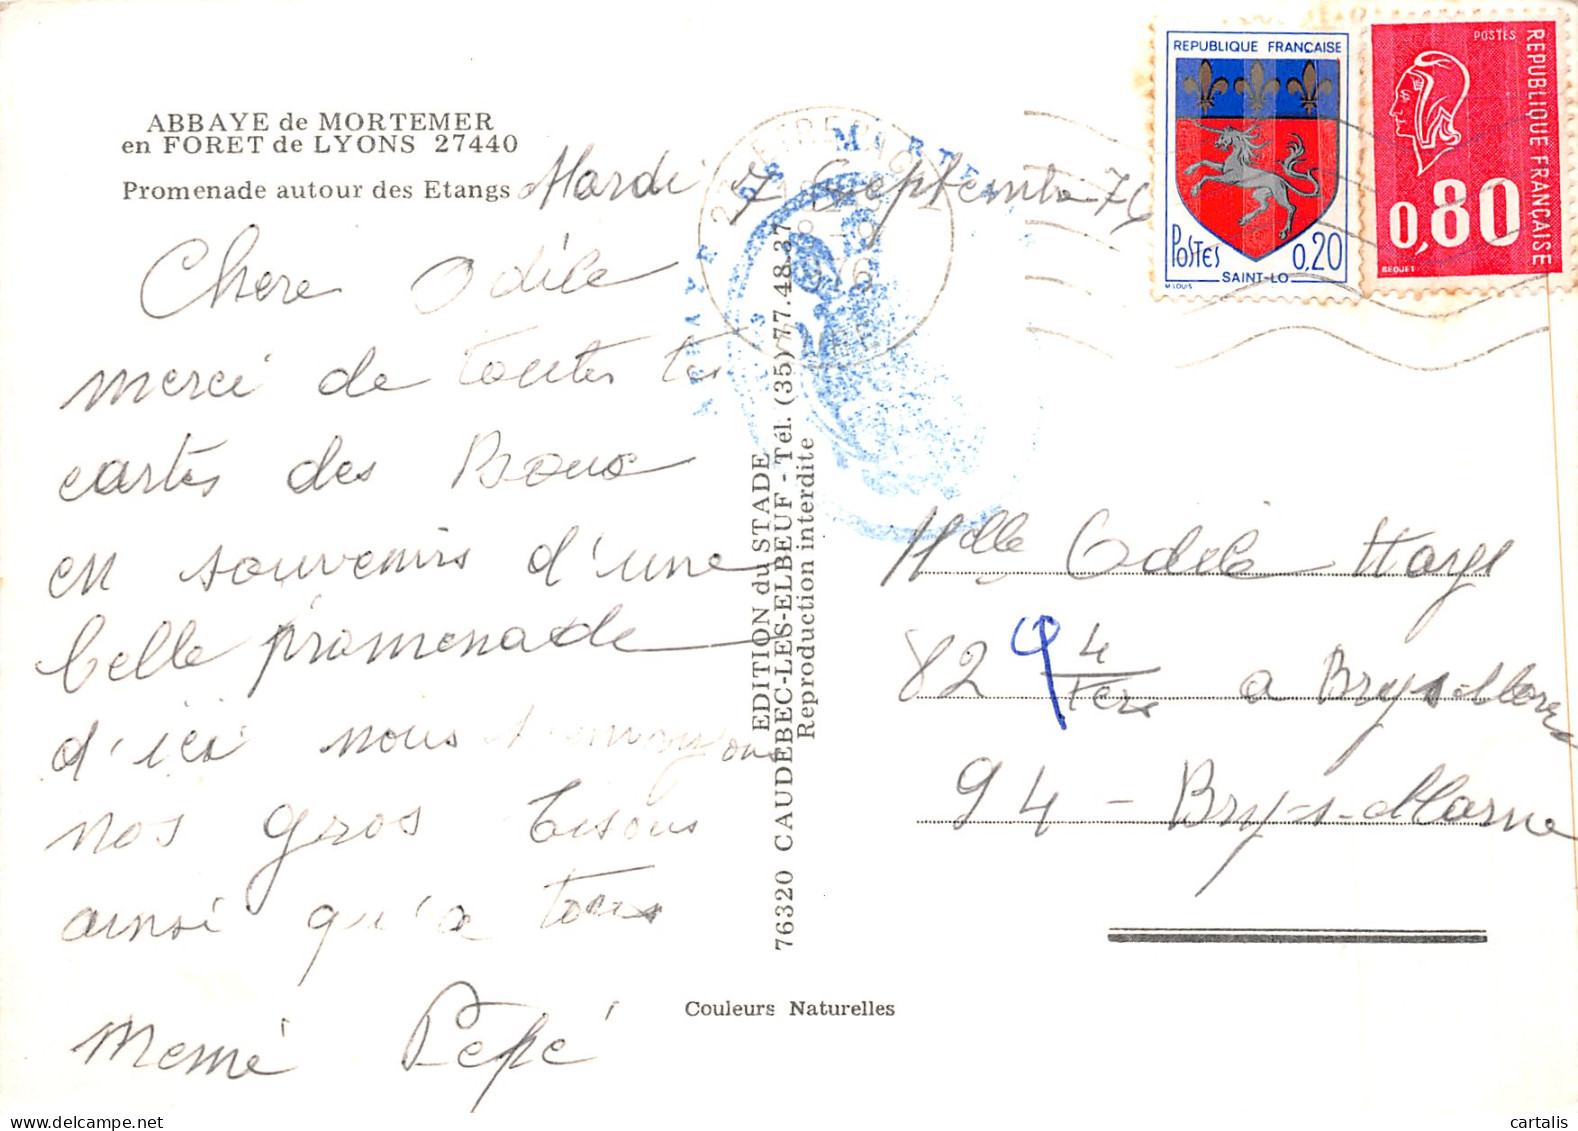 ABBAYE de MORTEMER
en FORET de LYONS 27440
Promenade autour des Etangs
Mardi 7 Septembre 76
Chere Odile
merci de toutes tes
cartes des Bouc
en souvenirs d'une
belle promenade
d'ici nous t'envoyons
nos gros bisous
ainsi qu'a tous
Memé Pépé
REPUBLIQUE FRANÇAISE
Postes 0,20
SAINT-LO
M LOUIS
POSTES
REPUBLIQUE FRANÇAISE
0,80
BEQUET
EDITION du STADE
76320 CAUDEBEC-LES-ELBEUF - Tél. (35) 77.48.37
Reproduction interdite
Couleurs Naturelles
Mlle Odile
82
a Bry-s-Marne
94 - Bry-s-Marne
cartalis
delcampe.net